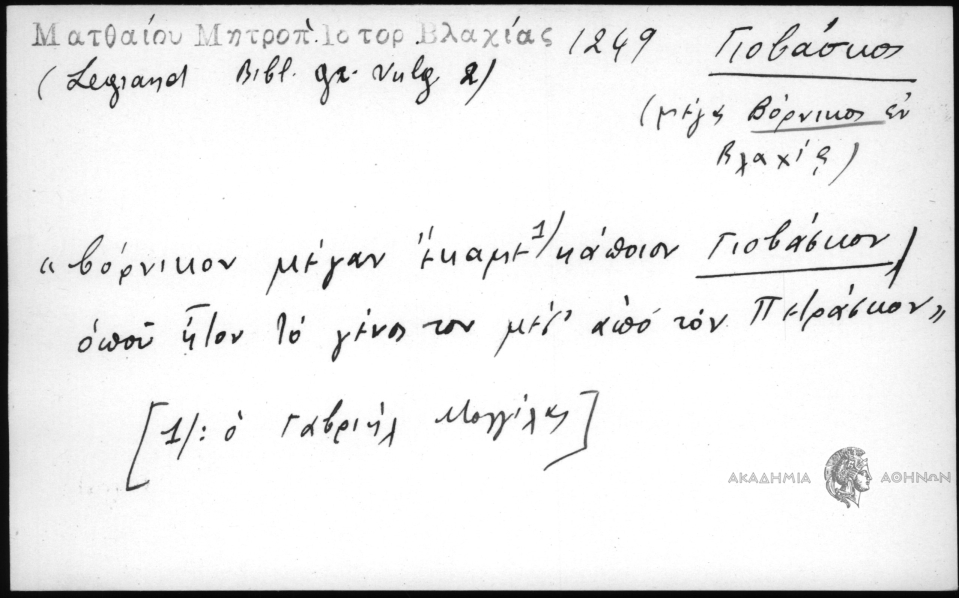 Ματθαίου Μητροπ. Ιστορ Βλαχίας 1249 Γιοβάσκος
(Legrand Bibl. gr. vulg 2)
(μέγας Βόρνικος ἐν
Βλαχίᾳ)
« βόρνικον μέγαν ἔκαμε 1/ κάποιον Γιοβάσκον,
ὁποῦ ἦτον τὸ γένος του μέσ' ἀπό τὸν Πετράσκον»
[1/: ὁ Γαβριήλ Μογγίλας]
ΑΚΑΔΗΜΙΑ ΑΘΗΝΩΝ